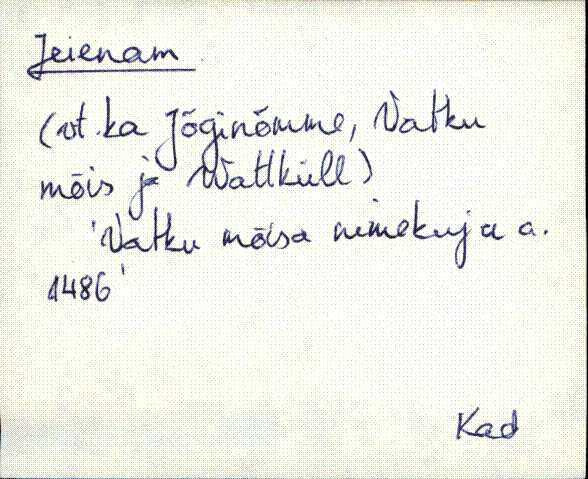 Jeienam
(vt. ka Jõginõmme, Vatku
mõis ja Wattküll)
'Vatku mõisa nimekuju a.
1486'
Kad